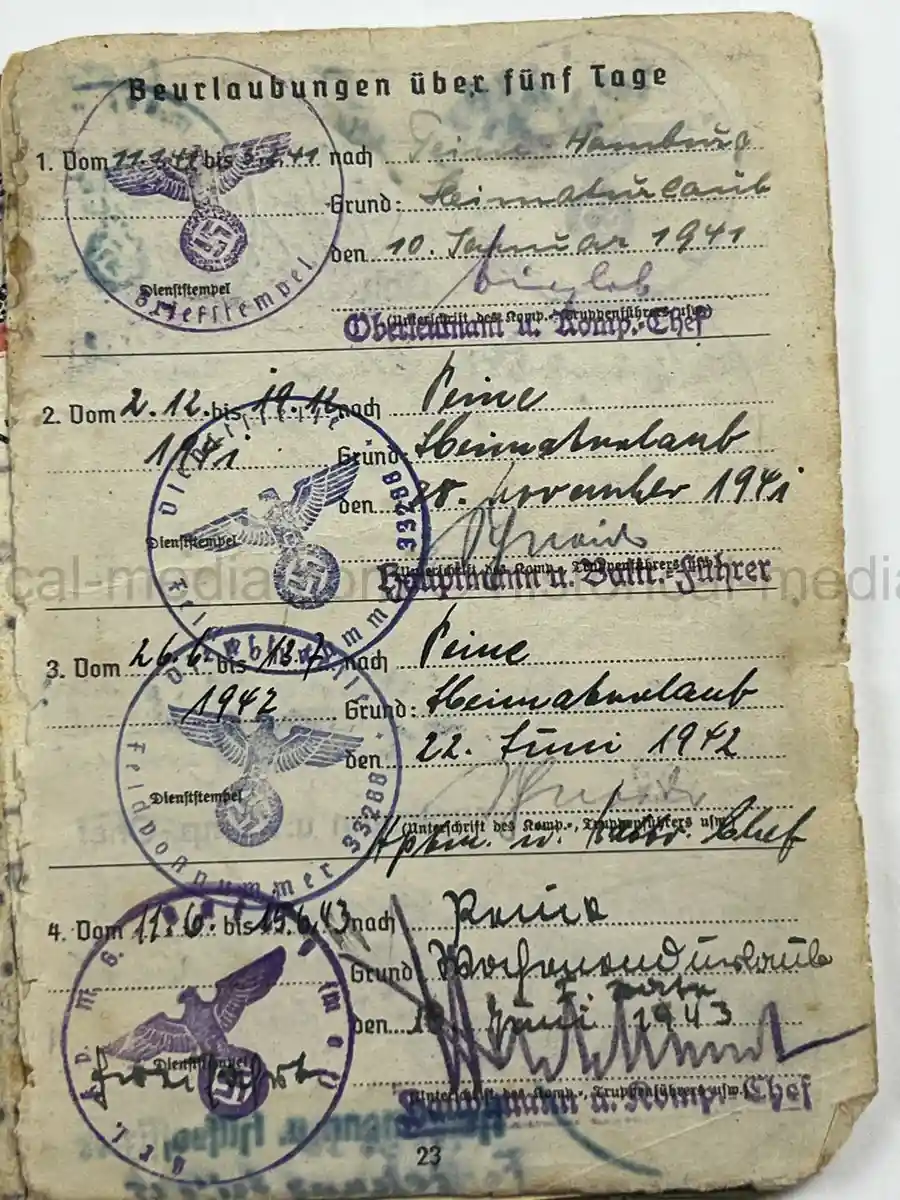 Beurlaubungen über fünf Tage
1. Vom 11.1.41 bis 5.2.41 nach Peine Hamburg
Grund: Heimaturlaub
den 10. Januar 1941
Dienststempel
Briefstempel
(Unterschrift des Komp.-, Truppenführers usw.)
Oberleutnant u. Komp.-Chef
2. Vom 2.12. bis 19.12 nach Peine
1941 Grund: Heimaturlaub
den 28. November 1941
Dienststempel
Dienststelle Feldpostnummer 33288
(Unterschrift des Komp.-, Truppenführers usw.)
Hauptmann u. Battr.-Führer
3. Vom 26.6. bis 13.7 nach Peine
1942 Grund: Heimaturlaub
den 22. Juni 1942
Dienststempel
Dienststelle Feldpostnummer 33288
(Unterschrift des Komp.-, Truppenführers usw.)
Hptm. u. Battr. Chef
4. Vom 11.6. bis 15.6.43 nach Peine
Grund: Wochenendurlaub
den Juni 1943
Dienststempel
(Unterschrift des Komp.-, Truppenführers usw.)
Hauptmann u. Komp.-Chef
23